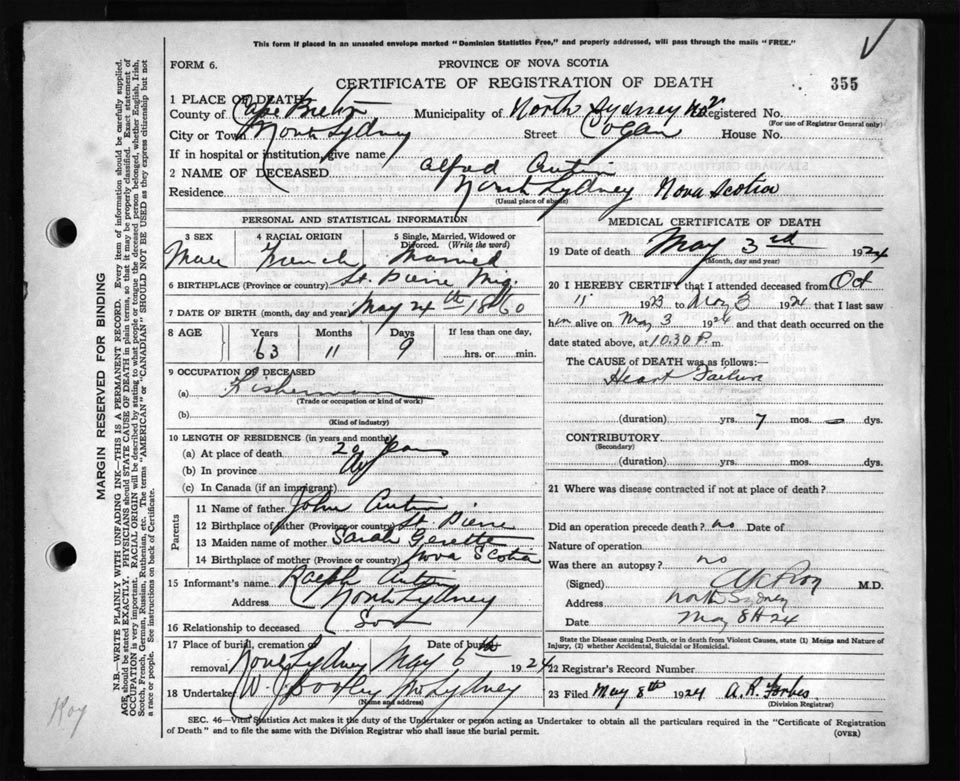 This form if placed in an unsealed envelope marked "Dominion Statistics Free," and properly addressed, will pass through the mails "FREE."
FORM 6.
PROVINCE OF NOVA SCOTIA
CERTIFICATE OF REGISTRATION OF DEATH
355
1 PLACE OF DEATH
County of Cape Breton Municipality of North Sydney Registered No.
(For use of Registrar General only)
City or Town North Sydney Street Cogan House No.
If in hospital or institution, give name
2 NAME OF DECEASED Alfred
Residence North Sydney Nova Scotia
(Usual place of abode)
PERSONAL AND STATISTICAL INFORMATION
3 SEX Male
4 RACIAL ORIGIN French
5 Single, Married, Widowed or Divorced. (Write the word) Married
6 BIRTHPLACE (Province or country) St. Pierre Miq.
7 DATE OF BIRTH (month, day and year) May 24th 1860
8 AGE Years Months Days If less than one day,
63 11 9 hrs. or min.
9 OCCUPATION OF DECEASED
(a) Fisherman
(Trade or occupation or kind of work)
(b)
(Kind of industry)
10 LENGTH OF RESIDENCE (in years and months)
(a) At place of death years
(b) In province
(c) In Canada (if an immigrant)
Parents
11 Name of father John
12 Birthplace of father (Province or country) St. Pierre
13 Maiden name of mother Sarah
14 Birthplace of mother (Province or country) Nova Scotia
15 Informant's name Ralph
Address North Sydney
16 Relationship to deceased Son
17 Place of burial, cremation or removal North Sydney Date of burial May 6 1924
18 Undertaker W. J. Dooley No Sydney
(Name and address)
MEDICAL CERTIFICATE OF DEATH
19 Date of death May 3rd 1924
(Month, day and year)
20 I HEREBY CERTIFY that I attended deceased from Oct
11 1923 to May 3 1924 that I last saw
him alive on May 3 1924 and that death occurred on
date stated above, at 10.30 P. m.
The CAUSE of DEATH was as follows:
Heart Failure
(duration) yrs. 7 mos. – dys.
CONTRIBUTORY
(Secondary)
(duration) yrs. mos. dys.
21 Where was disease contracted if not at place of death?
Did an operation precede death? no Date of
Nature of operation
Was there an autopsy? no
(Signed) M.D.
Address North Sydney
Date May 8th 24
State the Disease causing Death, or in death from Violent Causes, state (1) Means and Nature of
Injury, (2) whether Accidental, Suicidal or Homicidal.
22 Registrar's Record Number
23 Filed May 8th 1924 A. R. Forbes
(Division Registrar)
SEC. 46—Vital Statistics Act makes it the duty of the Undertaker or person acting as Undertaker to obtain all the particulars required in the "Certificate of Registration
of Death" and to file the same with the Division Registrar who shall issue the burial permit.
(OVER)
MARGIN RESERVED FOR BINDING
N.B. WRITE PLAINLY WITH UNFADING INK—THIS IS A PERMANENT RECORD. Every item of information should be carefully supplied.
AGE should be stated EXACTLY. PHYSICIANS should STATE CAUSE OF DEATH in plain terms, so that it may be properly classified. Exact statement of
OCCUPATION is very important. RACIAL ORIGIN will be described by stating to what people or tongue the deceased person belonged, whether English, Irish,
Scotch, French, German, Russian, Ruthenian, etc. The terms "AMERICAN" or "CANADIAN" SHOULD NOT BE USED as they express citizenship but not
a race or people. See instructions on back of Certificate.